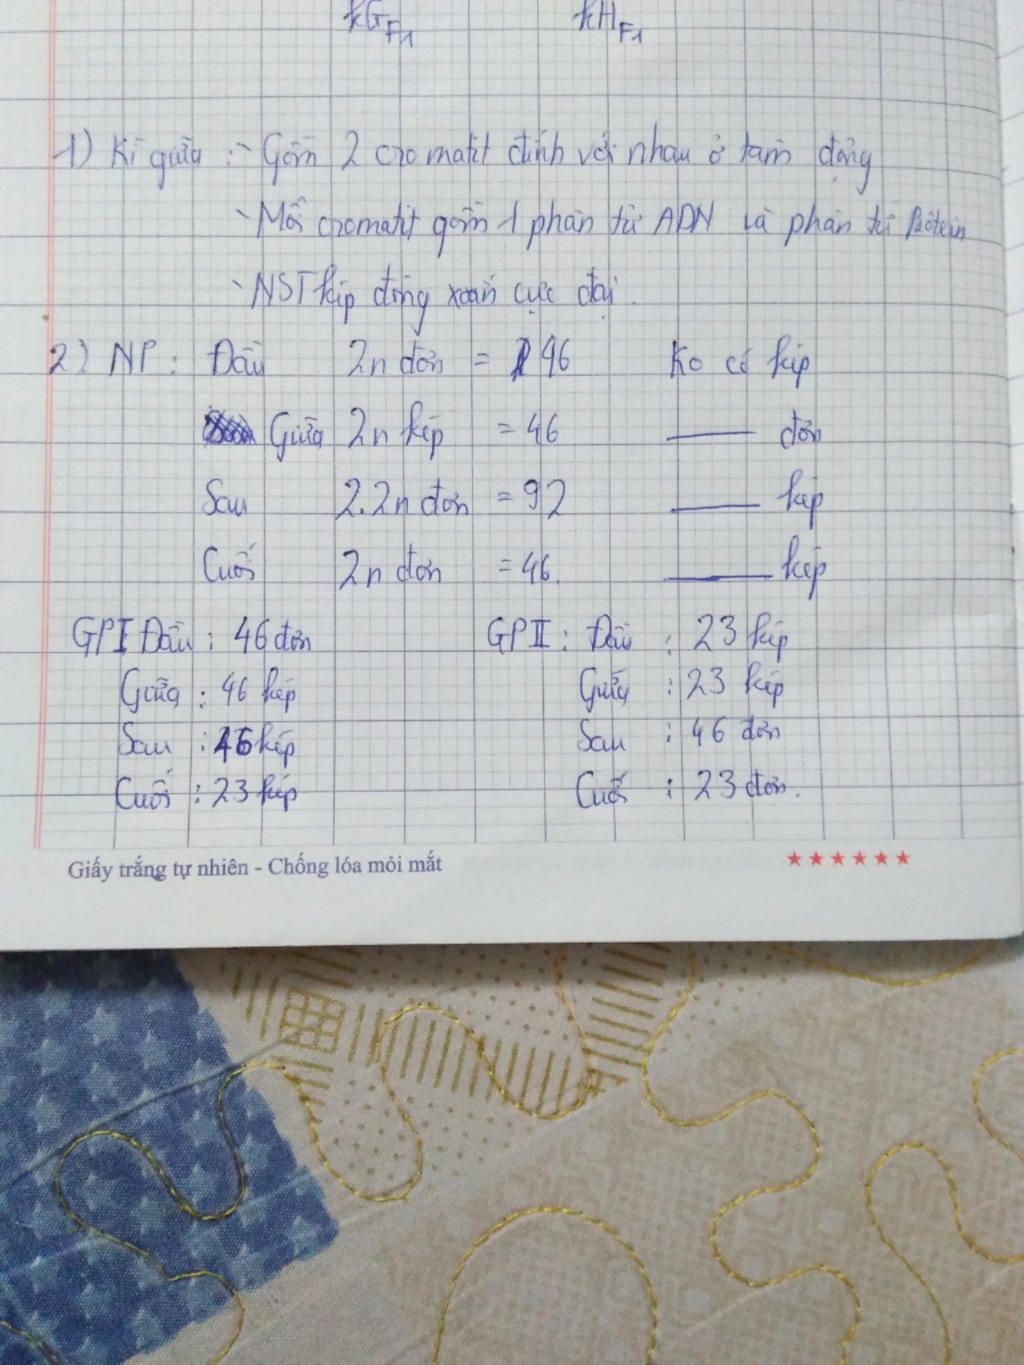 kG F1 kH F1
1) Kì giữa : - Gồm 2 cromatit đính với nhau ở tâm động
- Mỗi cromatit gồm 1 phân tử ADN và phân tử Prôtêin
- NST kép đóng xoắn cực đại.
2) NP : Đầu 2n đơn = 46 Ko có kép
Giữa 2n kép = 46 —— đơn
Sau 2.2n đơn = 92 —— kép
Cuối 2n đơn = 46. —— kép
GPI Đầu : 46 đơn GPII : Đầu : 23 kép
Giữa : 46 kép Giữa : 23 kép
Sau : 46 kép Sau : 46 đơn
Cuối : 23 kép Cuối : 23 đơn.
Giấy trắng tự nhiên - Chống lóa mỏi mắt